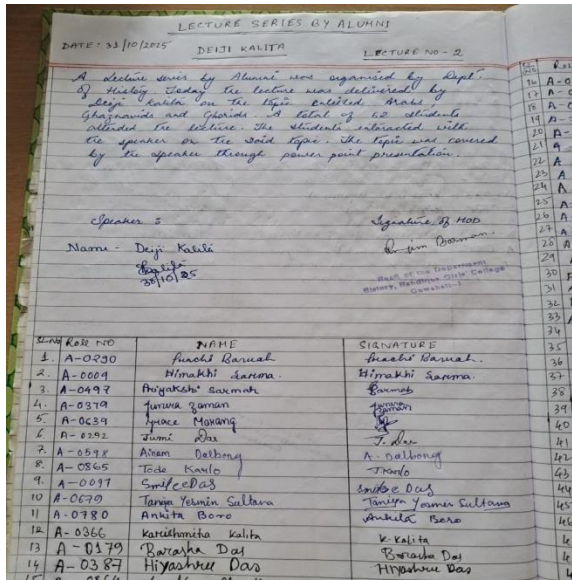 LECTURE SERIES BY ALUMNI
DATE: 31/10/2025 DEIJI KALITA LECTURE NO - 2
A Lecture series by Alumni was organised by Dept.
of History. Today the lecture was delivered by
Deiji Kalita on the topic entitled Arabs,
Ghaznavids and Ghorids. A total of 52 students
attended the lecture. The students interacted with
the speaker on the said topic. The topic was covered
by the speaker through power point presentation.
Speaker : Signature of HOD
Name - Deiji Kalita
Kalita
30/10/25
Head of the Department
History, Handique Girls' College
Guwahati-1
Sl.No Roll NO NAME SIGNATURE
1. A-0290 Prachi Baruah Prachi Baruah.
2. A-0009 Himakhi Sarma. Himakhi Sarma.
3. A-0497 Priyakshi Sarmah Sarmah
4. A-0379 Junura Zaman Zaman
5. A-0639 Grace Morang
6. A-0292 Jumi Das J. Das
7. A-0598 Ainam Dalbong A. Dalbong
8. A-0865 Tode Karlo T. Karlo
9. A-0097 Smilee Das Smilee Das
10 A-0679 Taniya Yesmin Sultana Taniya Yesmin Sultana
11 A-0780 Ankita Boro Ankita Boro
12 A-0366 Karishmita Kalita K. Kalita
13 A-0179 Barasha Das Barasha Das
14 A-0387 Hiyashree Das Hiyashree Das